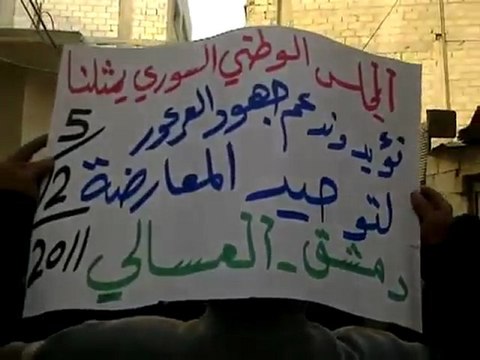 المجلس الوطني السوري يمثلنا
نؤيد وندعم جهود العرعور
لتوحيد المعارضة
دمشق - العسالي
5/
12
2011